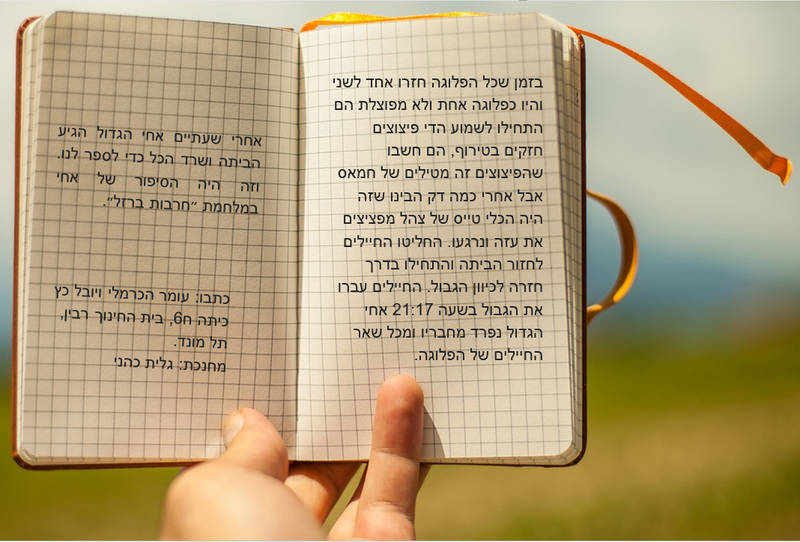 בזמן שכל הפלוגה חזרו אחד לשני
והיו כפלוגה אחת ולא מפוצלת הם
התחילו לשמוע הדי פיצוצים
חזקים בטירוף, הם חשבו
שהפיצוצים זה מטילים של חמאס
אבל אחרי כמה דק הבינו שזה
היה הכלי טייס של צהל מפציצים
את עזה ונרגעו. החליטו החיילים
לחזור הביתה והתחילו בדרך
חזרה לכיוון הגבול. החיילים עברו
את הגבול בשעה 21:17 אחי
הגדול נפרד מחבריו ומכל שאר
החיילים של הפלוגה.
אחרי שעתיים אחי הגדול הגיע
הביתה ושרד הכל כדי לספר לנו.
וזה היה הסיפור של אחי
במלחמת "חרבות ברזל".
כתבו: עומר הכרמלי ויובל כץ
כיתה ח6, בית החינוך רבין,
תל מונד.
מחנכת: גלית כהני